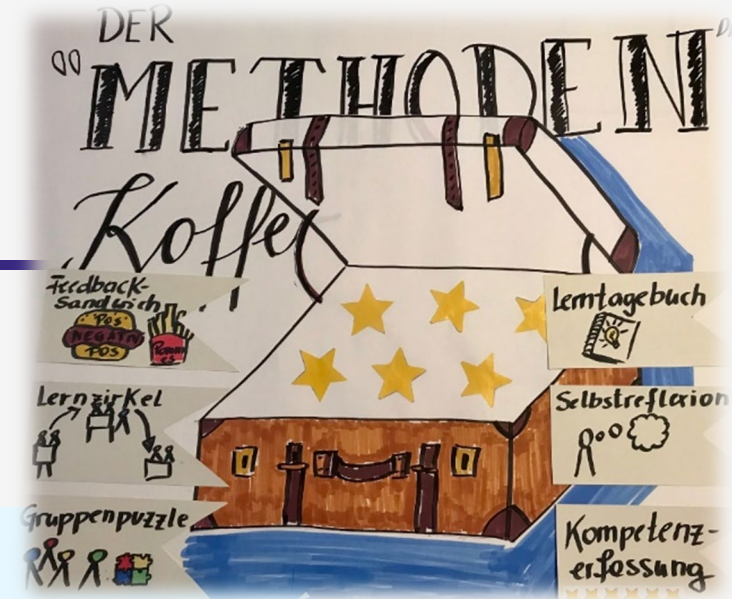 DER
"METHODEN"
Koffer
Feedback-
Sandwich
POS
NEGATIV
POS
Pommes
Lernzirkel
Gruppenpuzzle
Lerntagebuch
Selbstreflexion
Kompetenz-
erfassung